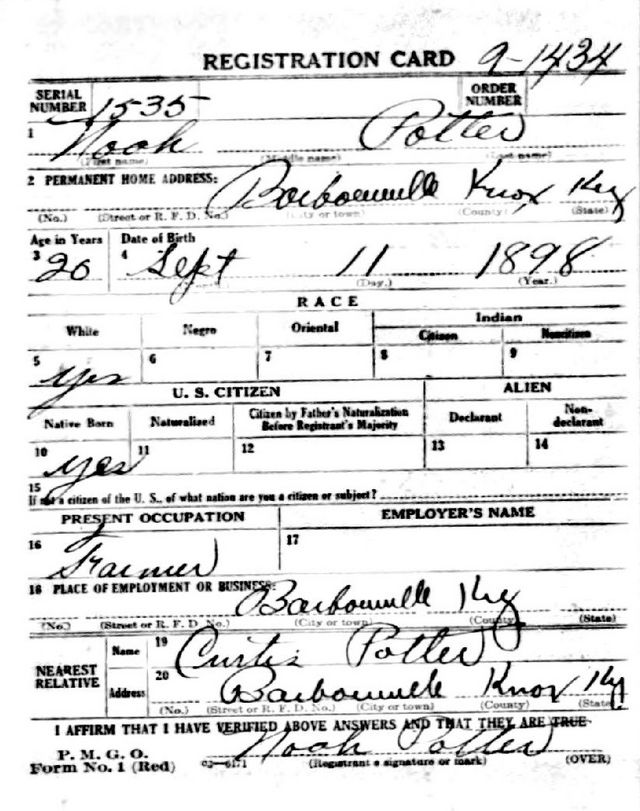 REGISTRATION CARD 9-1434
SERIAL NUMBER 1535 ORDER NUMBER
1 Noah Potter
(First name) (Middle name) (Last name)
2 PERMANENT HOME ADDRESS: Barbourville Knox Ky
(No.) (Street or R. F. D. No.) (City or town) (County) (State)
Age in Years Date of Birth
3 20 4 Sept 11 1898
(Day.) (Year.)
RACE
White Negro Oriental Indian
Citizen Noncitizen
5 yes 6 7 8 9
U. S. CITIZEN ALIEN
Native Born Naturalized Citizen by Father's Naturalization Before Registrant's Majority Declarant Non-declarant
10 yes 11 12 13 14
15
If not a citizen of the U. S., of what nation are you a citizen or subject?
PRESENT OCCUPATION EMPLOYER'S NAME
16 Farmer 17
18 PLACE OF EMPLOYMENT OR BUSINESS: Barbourville Ky
(No.) (Street or R. F. D. No.) (City or town) (County) (State)
NEAREST RELATIVE Name 19 Curtis Potter
Address 20 Barbourville Knox Ky
(No.) (Street or R. F. D. No.) (City or town) (County) (State)
I AFFIRM THAT I HAVE VERIFIED ABOVE ANSWERS AND THAT THEY ARE TRUE
P. M. G. O.
Form No. 1 (Red) Noah Potter
(Registrant's signature or mark) (OVER)